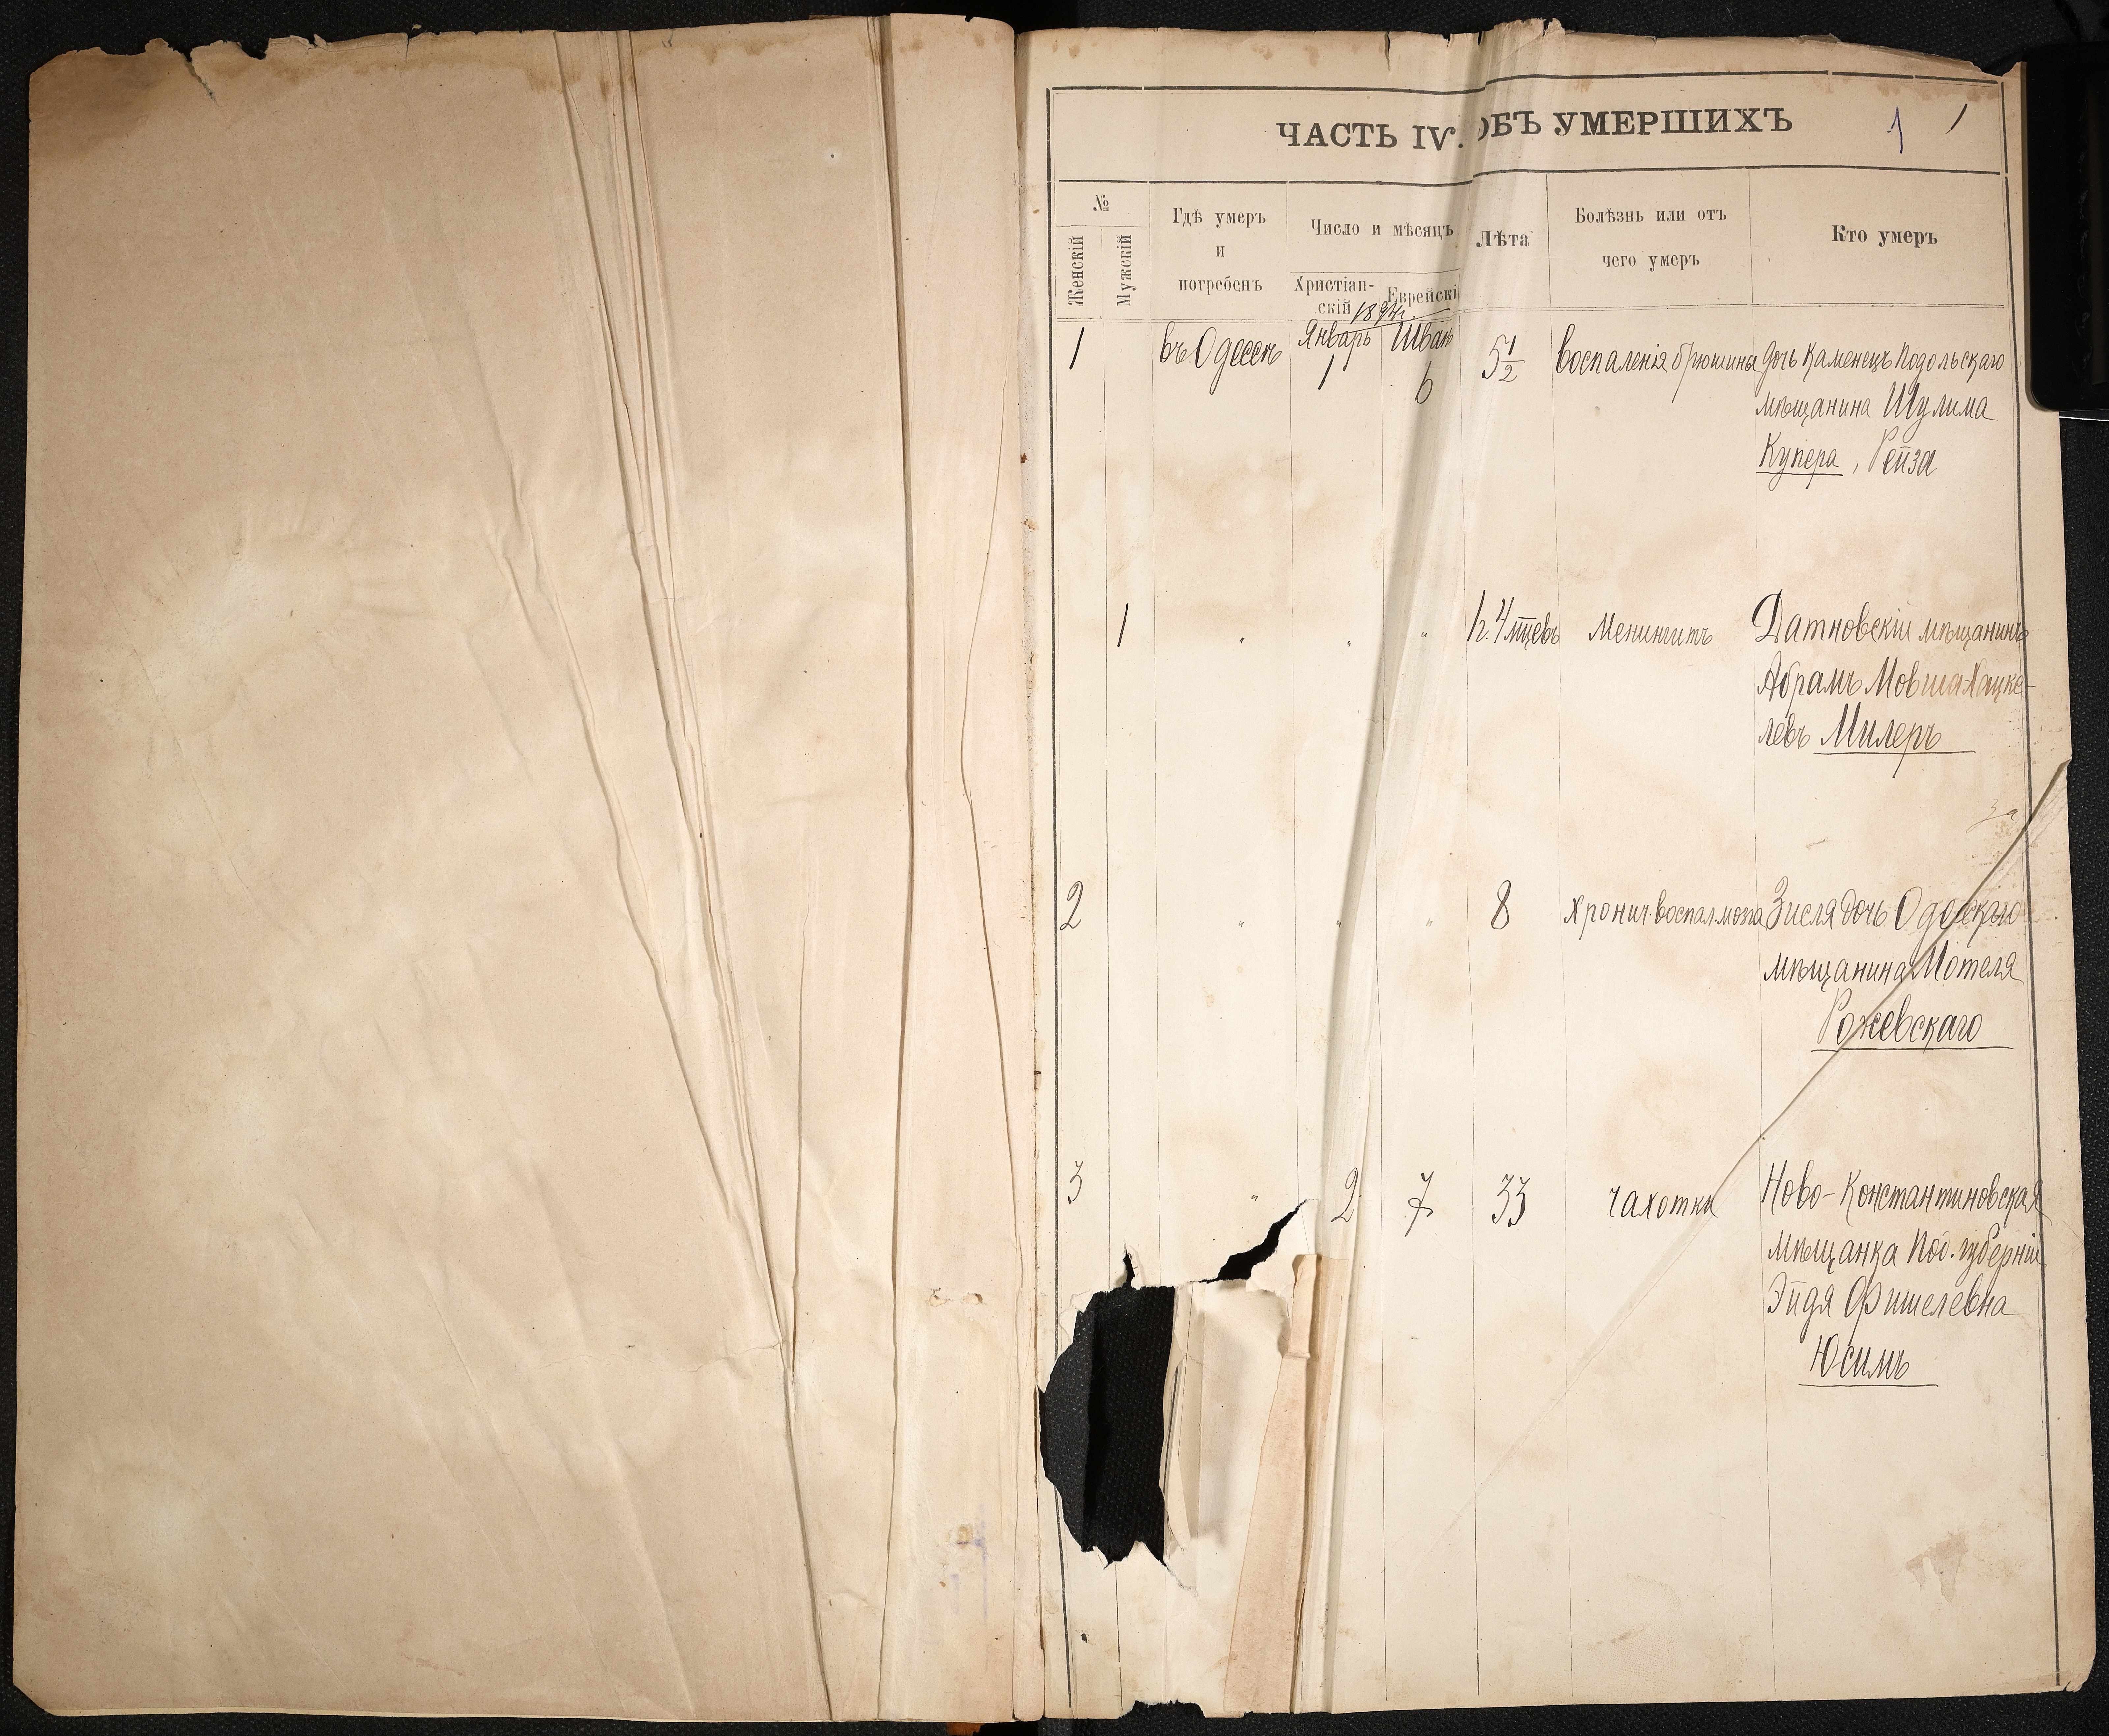 ЧАСТЬ IV. ОБЪ УМЕРШИХЪ
1 1
№
Женскій
Мужскій
Гдѣ умеръ
и
погребенъ
Число и мѣсяцъ
Христіан-
скій
Еврейскі
Лѣта
Болѣзнь или отъ
чего умеръ
Кто умеръ
1894г.
1 въ Одессѣ Январь Шват 5 1/2 воспаленія брюшины дочь Каменецъ Подольскаго
1 6 мѣщанина Шулима
Купера, Рейза
1 " " " 1г. 4 мцевъ Менингитъ Датновскій мѣщанинъ
Абрамъ Мовша Хацке-
левъ Милеръ
2 " " " 8 хронич. воспал. мозга Зисля дочь Одесскаго
мѣщанина Мотеля
Рожевскаго
3 " 2 7 33 чахотка Ново-Константиновская
мѣщанка Под. губерніи
Эйдя Фишелевна
Юсимъ